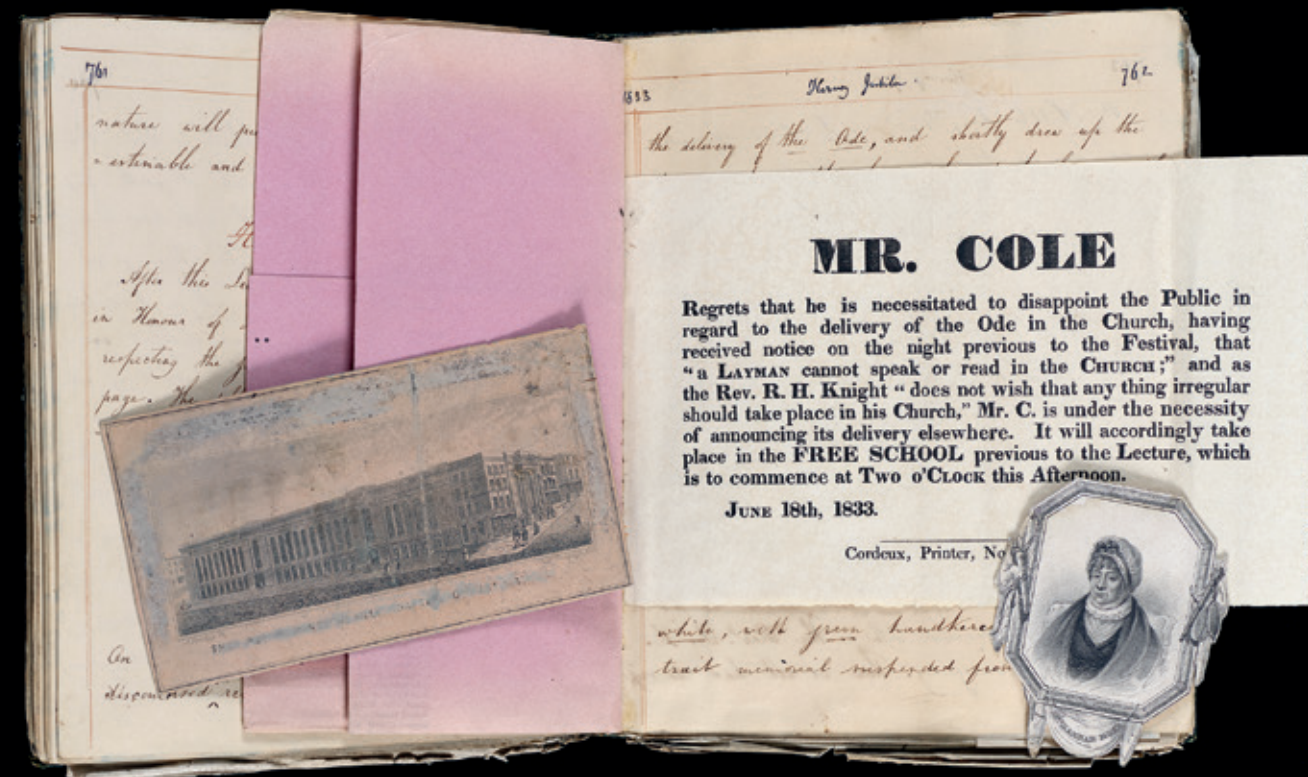 761
nature will
estimable and
After this
in Honour of
respecting the
page. The
On
discoursed
1833
Hervey Jubilee.
762
the delivery of the Ode, and shortly drew up the
MR. COLE
Regrets that he is necessitated to disappoint the Public in
regard to the delivery of the Ode in the Church, having
received notice on the night previous to the Festival, that
“a LAYMAN cannot speak or read in the CHURCH;” and as
the Rev. R. H. Knight “does not wish that any thing irregular
should take place in his Church,” Mr. C. is under the necessity
of announcing its delivery elsewhere. It will accordingly take
place in the FREE SCHOOL previous to the Lecture, which
is to commence at TWO O'CLOCK this Afternoon.
JUNE 18th, 1833.
Cordeux, Printer, No
white, with green
trait memorial suspended from